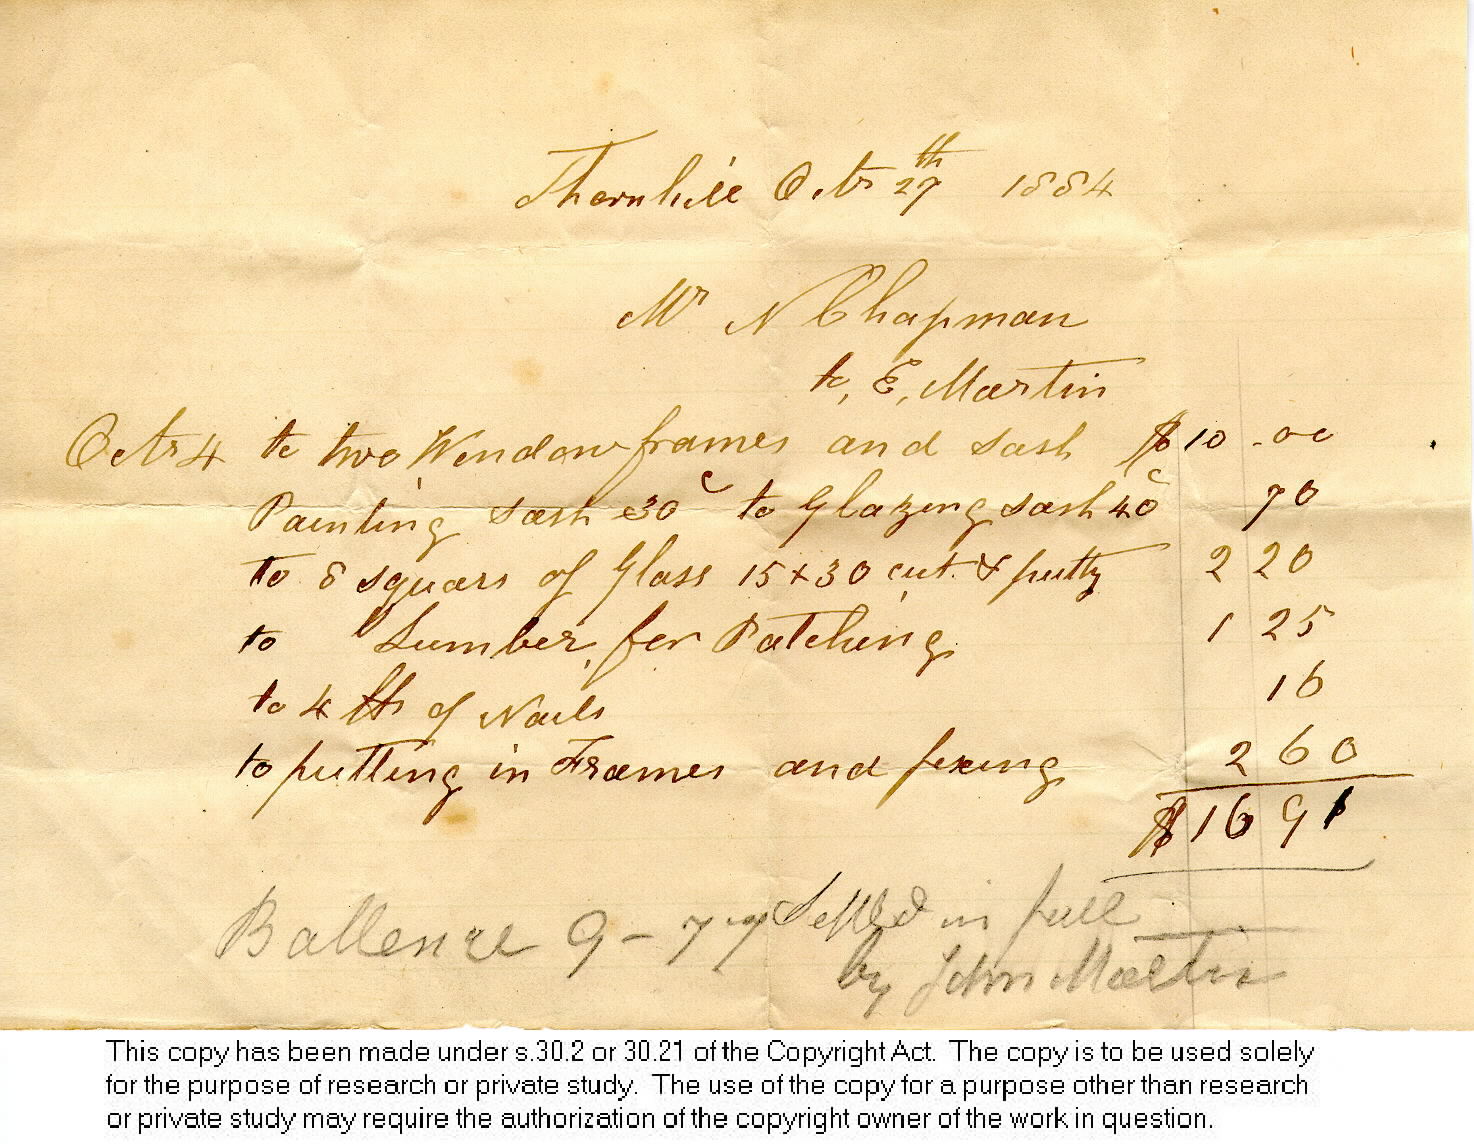 Thornhill Octr 29th 1884
Mr N Chapman
to, E, Martin
Octr 4 to two Window frames and Sash $10-00
Painting Sash 30c to Glazing Sash 40c 70
to 8 squars of Glass 15x30 cut & putty 2 20
to Lumber for Patching 1 25
to 4 lb of Nails 16
to putting in Frames and fixing 2 60
$16 91
Ballence 9-77 Settled in full
by John Martin
This copy has been made under s.30.2 or 30.21 of the Copyright Act. The copy is to be used solely
for the purpose of research or private study. The use of the copy for a purpose other than research
or private study may require the authorization of the copyright owner of the work in question.